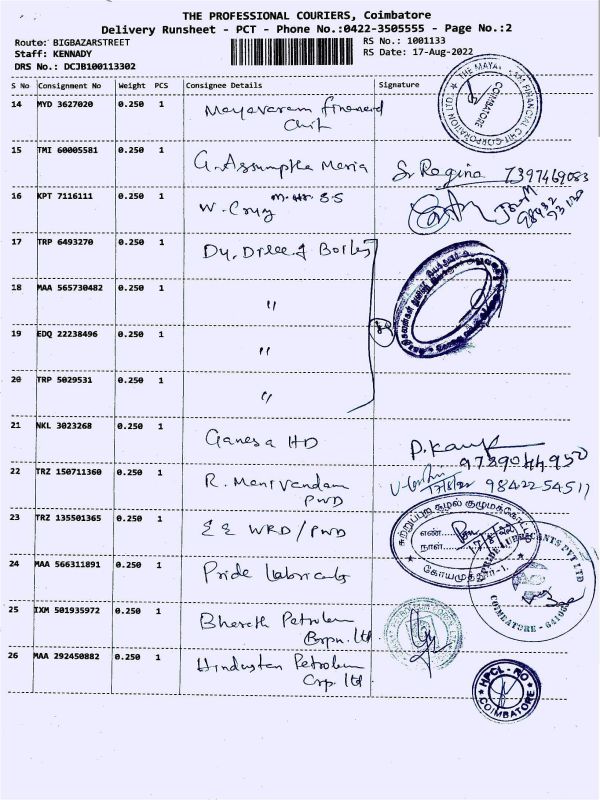 THE PROFESSIONAL COURIERS, Coimbatore
Delivery Runsheet - PCT - Phone No.:0422-3505555 - Page No.:2
Route: BIGBAZARSTREET
Staff: KENNADY
DRS No.: DCJB100113302
RS No.: 1001133
RS Date: 17-Aug-2022
S No Consignment No Weight PCS Consignee Details Signature
14 MYD 3627020 0.250 1 Mayavaram financial
Chit
COIMBATORE
15 TMI 60005581 0.250 1 G. Assumptha Maria Sr Regina 7397469083
16 KPT 7116111 0.250 1 W. Cruz M. Hr. S.S
17 TRP 6493270 0.250 1
18 MAA 565730482 0.250 1 "
19 EDQ 22238496 0.250 1 "
20 TRP 5029531 0.250 1 "
21 NKL 3023268 0.250 1 Ganesa HD 9789044950
22 TRZ 150711360 0.250 1 R. Manivandam
PWD
17/8/22 98422-54511
23 TRZ 135501365 0.250 1 EE WRD/PWD
எண்
நாள்
24 MAA 566311891 0.250 1 Pride
COIMBATORE
25 IXM 501935972 0.250 1 Bharath Petroleum
Corpn. ltd
26 MAA 292450882 0.250 1 Hindustan Petroleum
Corp. ltd
HPCL - RO
COIMBATORE